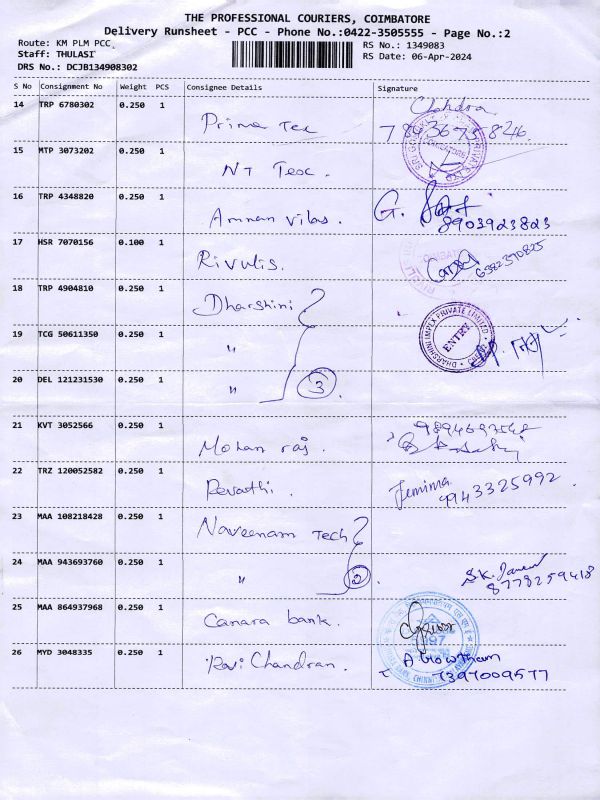 THE PROFESSIONAL COURIERS, COIMBATORE
Delivery Runsheet - PCC - Phone No.:0422-3505555 - Page No.:2
Route: KM PLM PCC.
RS No.: 1349083
Staff: THULASI
RS Date: 06-Apr-2024
DRS No.: DCJB134908302
S No Consignment No Weight PCS Consignee Details Signature
14 TRP 6780302 0.250 1 Prima Tex Chandra
15 MTP 3073202 0.250 1 NT Texc.
16 TRP 4348820 0.250 1 Amman Vilas. G.
8903923823
17 HSR 7070156 0.100 1 Rivulis. 6382370825
18 TRP 4904810 0.250 1 Dharshini
DHARSHINI IMPEX PRIVATE LIMITED
ENTRY
19 TCG 50611350 0.250 1 "
20 DEL 121231530 0.250 1 " 3
21 KVT 3052566 0.250 1 Mohan raj.
22 TRZ 120052582 0.250 1 Revathi. Jemima
9943325992.
23 MAA 108218428 0.250 1 Naveenam Tech
24 MAA 943693760 0.250 1 " 2 S.K.
8778259418
25 MAA 864937968 0.250 1 Canara bank.
26 MYD 3048335 0.250 1 Ravi Chandran. A Gowtham
7397009577